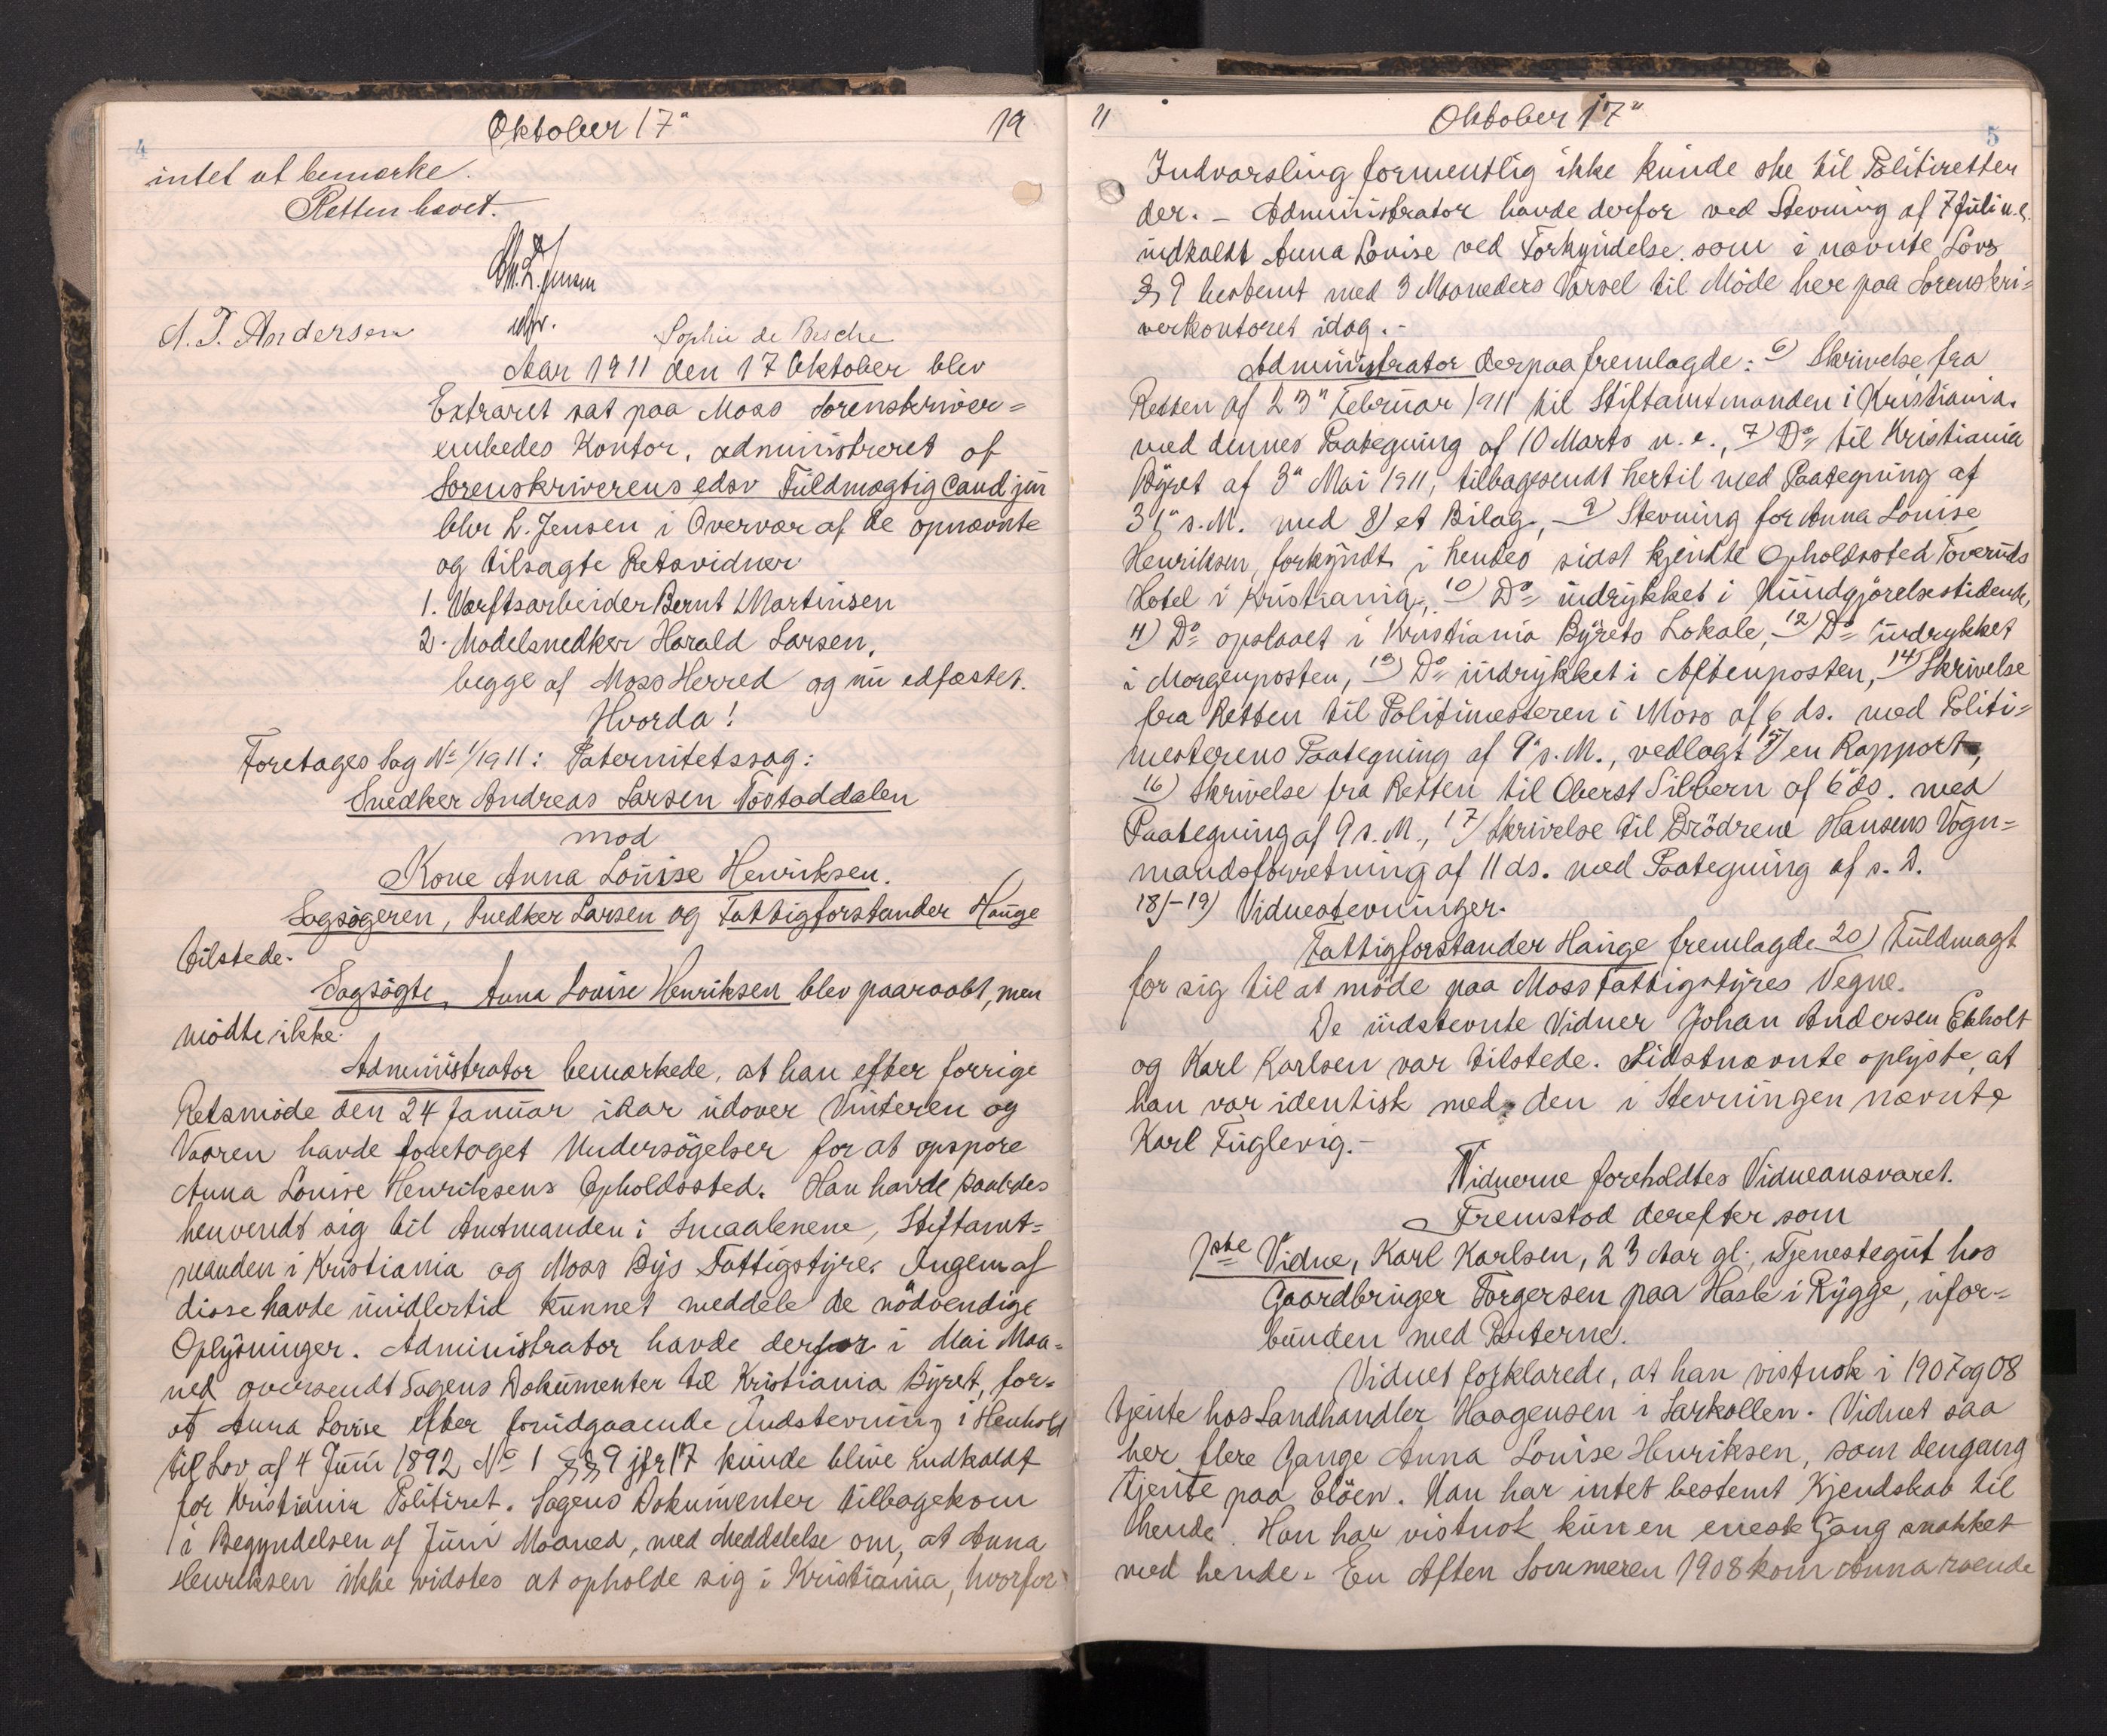 4
Oktober 17"
19
intet at bemærke.
Retten hævet.
L. Jensen
A. T. Andersen
Sophie de Besche
Aar 1911 den 17 Oktober blev
Extraret sat paa Moss Sorenskriver=
embedes Kontor, administreret af
Sorenskriverens edsv Fuldmægtig Cand jur
L. Jensen i Overvær af de opnævnte
og tilsagte Retsvidner
1. Værftsarbeider Bernt Martinsen
2. Modelsnedker Harald Larsen,
begge af Moss Herred og nu edfæstet.
Hvorda!
Foretages Sag No 1/1911: Paternitetssag:
Snedker Andreas Larsen Nöstoddalen
mod
Kone Anna Louise Henriksen.
Sagsögeren, Snedker Larsen og Fattigforstander Hauge
tilstede.
Sagsögte, Anna Louise Henriksen blev paaraabt, men
mödte ikke.
Administrator bemærkede, at han efter forrige
Retsmöde den 24 Januar iaar udover Vinteren og
Vaaren havde foretaget Undersögelser for at opspore
Anna Louise Henriksens Opholdssted. Han havde saaledes
henvendt sig til Amtmanden i Smaalenene, Stiftamt=
manden i Kristiania og Moss Bys Fattigstyre. Ingen af
disse havde imidlertid kunnet meddele de nödvendige
Oplysninger. Administrator havde derfor i Mai Maa=
ned oversendt Sagens Dokumenter til Kristiania Byret, for=
at Anna Lovise efter forudgaaende Indstevning i Henhold
til Lov af 4 Juni 1892 No 1 §§ 9 jfr 17 kunde blive indkaldt
for Kristiania Politiret. Sagens Dokumenter tilbagekom
i Begyndelsen af Juni Maaned, med Meddelelse om, at Anna
Henriksen ikke vidstes at opholde sig i Kristiania, hvorfor
11
Oktober 17"
5
Indvarsling formentlig ikke kunde ske til Politiretten
der. - Administrator havde derfor ved Stevning af 7 Juli n.e.
indkaldt Anna Lovise ved Forkyndelse som i nævnte Lovs
§ 9 bestemt med 3 Maaneders Varsel til Möde her paa Sorenskri=
verkontoret idag. -
Administrator derpaa fremlagde: 6) Skrivelse fra
Retten af 23" Februar 1911 til Stiftamtmanden i Kristiania.
med dennes Paategning af 10 Marts n. e., 7) Do til Kristiania
Byret af 3" Mai 1911, tilbagesendt hertil med Paategning af
31" s. M. med 8) et Bilag, 9) Stevning for Anna Louise
Henriksen, forkyndt i hendes sidst kjendte Opholdssted Toveruds
Hotel i Kristiania, 10) Do indrykket i Kundgjörelsestidende,
11) Do opslaaet i Kristiania Byrets Lokale, 12) Do indrykket
i Morgenposten, 13) Do indrykket i Aftenposten, 14) Skrivelse
fra Retten til Politimesteren i Moss af 6 ds. med Politi=
mesterens Paategning af 9" s. M., vedlagt 15) en Rapport,
16) Skrivelse fra Retten til Oberst Sibbern af 6 ds. med
Paategning af 9 s. M., 17) Skrivelse til Brödrene Hansens Vogn=
mandsforretning af 11 ds. med Paategning af s. D.
18)-19) Vidnestevninger.
Fattigforstander Hauge fremlagde 20) Fuldmagt
for sig til at möde paa Moss Fattigstyres Vegne.
De indstevnte Vidner Johan Andersen Ekholt
og Karl Karlsen var tilstede. Sidstnævnte oplyste, at
han var identisk med den i Stevningen nævnte
Karl Fuglevig. -
Vidnerne foreholdtes Vidneansvaret.
Fremstod derefter som
1ste Vidne, Karl Karlsen, 23 Aar gl., Tjenestegut hos
Gaardbruger Torgersen paa Hasle i Rygge, ufor=
bunden med Parterne.
Vidnet forklarede, at han vistnok i 1907 og 08
tjente hos Landhandler Haagensen i Larkollen. Vidnet saa
her flere Gange Anna Louise Henriksen, som dengang
tjente paa Elöen. Han har intet bestemt Kjendskab til
hende. Han har vistnok kun en eneste Gang snakket
med hende. En Aften Sommeren 1908 kom Anna roende